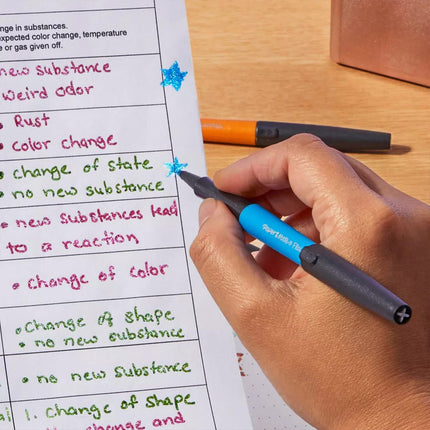 nge in substances.
xpected color change, temperature
e or gas given off.
new substance
Weird odor
• Rust
• color change
• change of state
• no new substance
• new substances lead
to a reaction
• change of color
• Change of shape
• no new substance
• no new substance
1. change of shape
change and